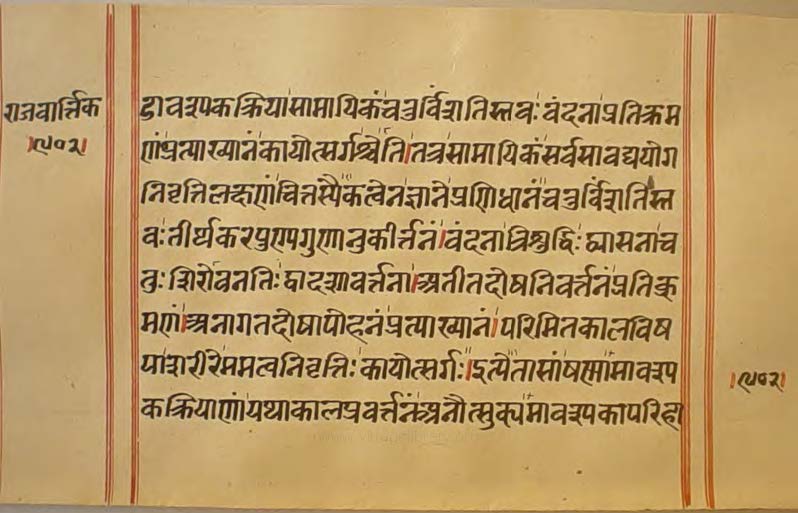 राजवार्त्तिक
।७०२।
डावश्यकक्रियाः सामायिकं चतुर्विंशतिस्तवः वंदना प्रतिक्रम
णं प्रत्याख्यानं कायोत्सर्गश्चेति। तत्र सामायिकं सर्वसावद्ययोग
निवृत्तिलक्षणं चित्तस्यैकत्वेन ज्ञानेन प्रणिधानं चतुर्विंशतिस्त
वः तीर्थकरपुण्यगुणानुकीर्त्तनं। वंदना त्रिशुद्धिः द्व्यासना च
तुः शिरोवनतिः द्वादशावर्त्तना। अतीतदोषनिवर्त्तनं प्रतिक्र
मणं। अनागतदोषापोहनं प्रत्याख्यानं। परिमितकालविष
या शरीरे ममत्वनिवृत्तिः कायोत्सर्गः। इत्येतासां षण्णामावश्य
कक्रियाणां यथाकालप्रवर्त्तनं अनौत्सुक्यमावश्यकापरिहा
।७०२।